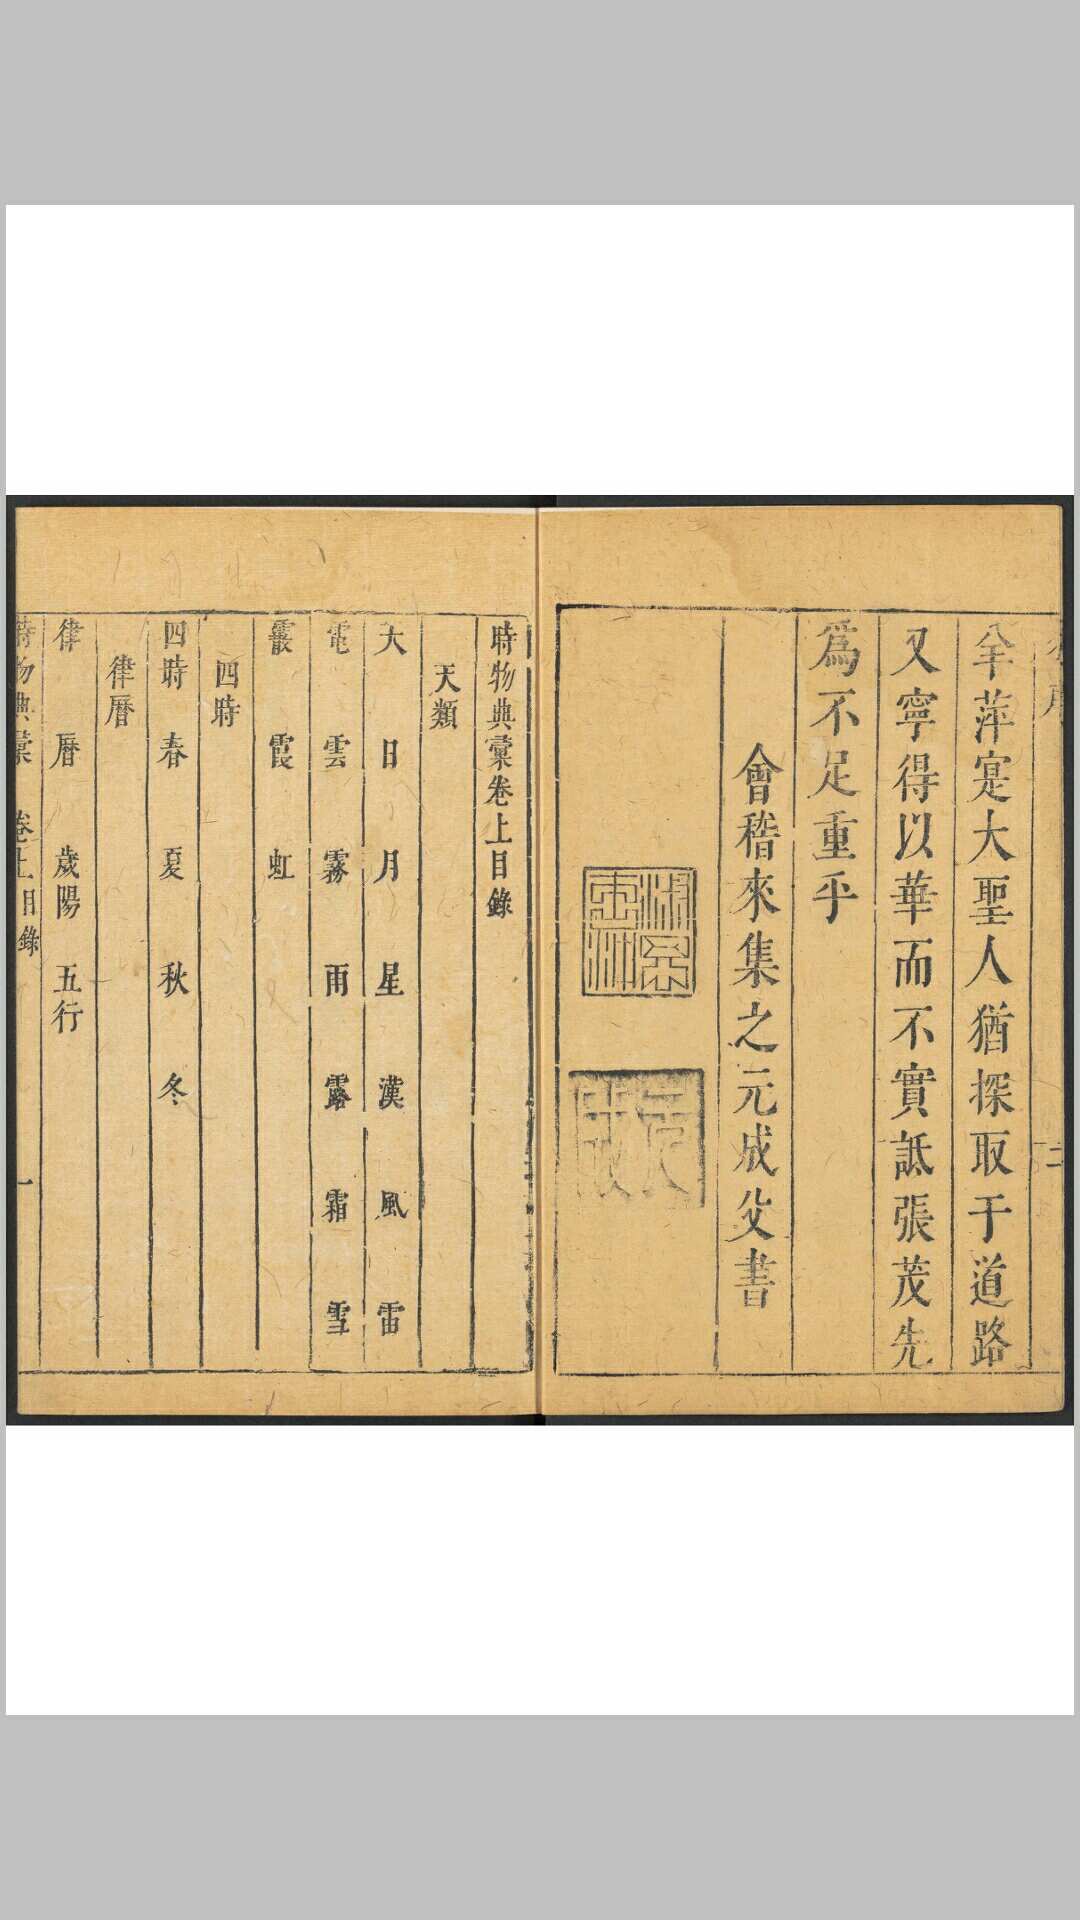 羊萍寔大聖人猶探取于道路
又寧得以華而不實詆張茂先
為不足重乎
會稽來集之元成父書
時物典彙卷上目錄
天類
天 日 月 星 漢 風 雷
電 雲 霧 雨 露 霜 雪
霰 霞 虹
四時
四時 春 夏 秋 冬
律曆
律 曆 歲陽 五行
時物典彙 卷上目錄 一